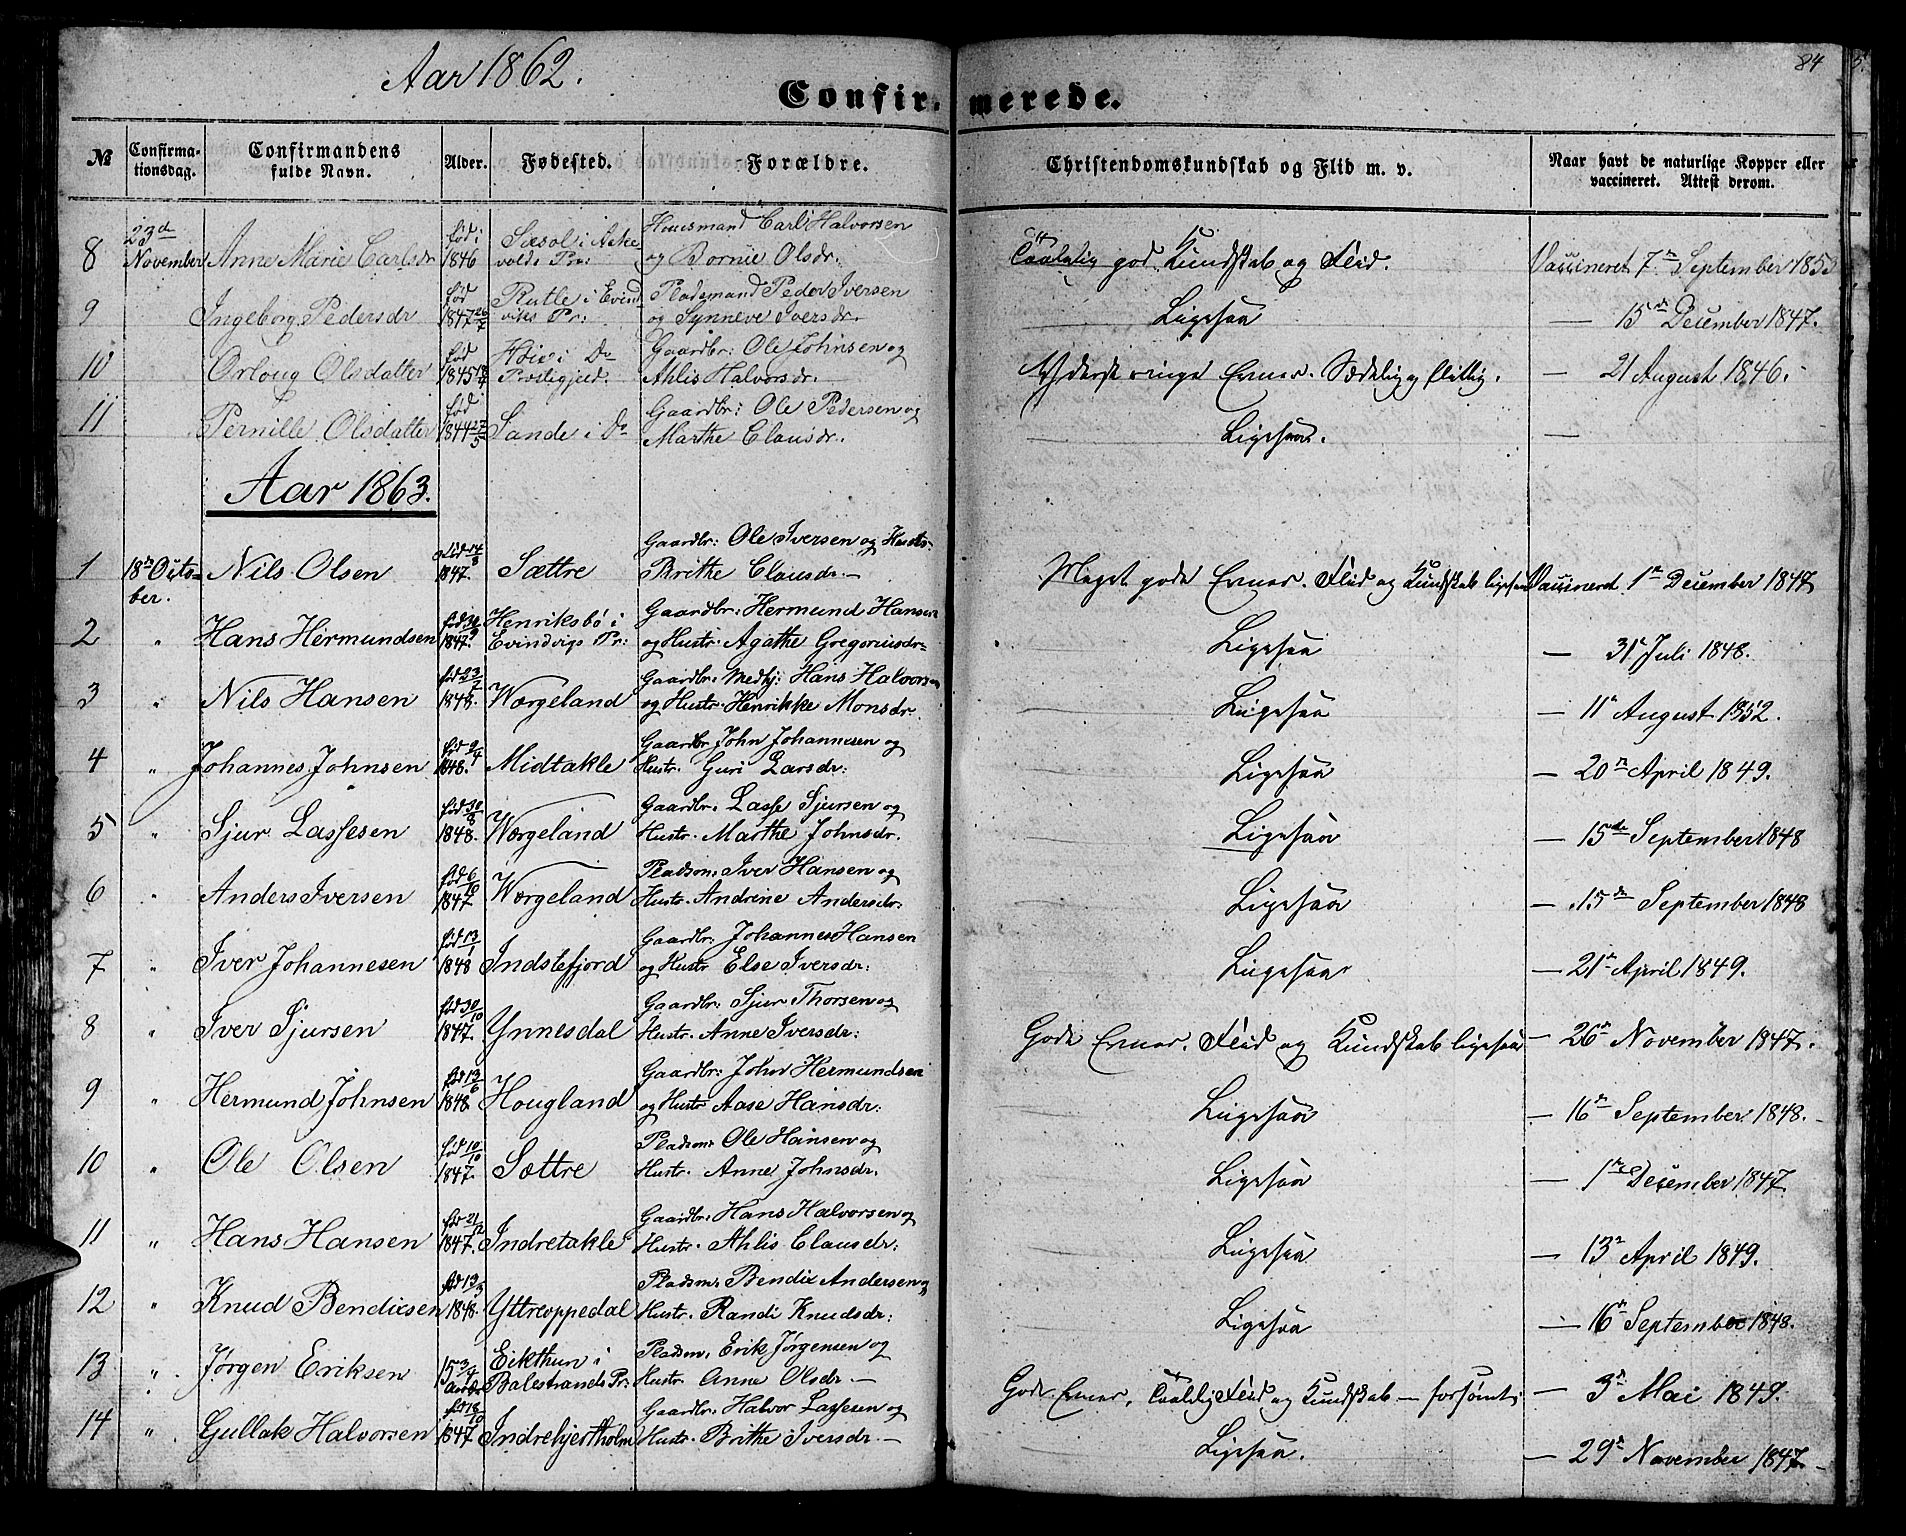 Aar 1862.
84
Confirmerede.
№
Confirmationsdag.
Confirmandens fulde Navn.
Alder.
Fødested.
Forældre.
Christendomskundskab og Flid m. v.
Naar havt de naturlige Kopper eller vaccineret. Attest derom.
8 23d November Anne Marie Carlsdr født 1846 Huusmand Carl Halvorsen og Olsdr. god Kundskab og Flid. Vaccineret 7 September 1853
9 Ingeborg Pedersdr fød 1847 26/7 Rutle i Evindviks Pr: Pladsmand Peder Iversen og Synneve Iversdr. Ligesaa — 15de December 1847.
10 Olsdatter fød 1845 i Do Præstegjed. Gaardbr: Ole Johnsen og Ahlis Halvorsdr. Yderst ringe Evner. Sædelig og flittig. — 21 August 1846.
11 Pernille Olsdatter fød 1844 27/5 Sande i Do Gaardbr: Ole Pedersen og Marthe Clausdr. Ligesaa. —
Aar 1863.
1 18de October. Nils Olsen 1847. Sættre Gaardbr: Ole Iversen og Hustr: Brithe Clausdr. — Meget gode Evner. Flid og Kundskab ligesaa Vaccineret 1n December 1847
2 " Hans Hermundsen fød 30/9 1847. Henriksbø i Evindvigs Pr: Gaardbr: Hermund Hansen og Hustr. Agathe Gregoriusdr. Ligesaa — 31 Juli 1848.
3 " Nils Hansen fød 23/2 1848. Wærgeland Gaardbr. Medhj: Hans Halvorsen og Hustr. Henrikke Monsdr. Ligesaa — 11 August 1852.
4 " Johannes Johnsen fød 2/4 1848. Midtakle Gaardbr John Johannesen og Hustr. Guri Larsdr. Ligesaa — 20n April 1849.
5 " Sjur Lassesen fød 30/8 1848. Wærgeland Gaardbr. Lasse Sjursen og Hustr. Marthe Johnsdr. Ligesaa — 15de September 1848
6 " Anders Iversen fød 6/10 1847 Wærgeland Pladsm. Iver Hansen og Hustr. Andrine Andersdr. Ligesaa — 15de September 1848
7 " Iver Johannesen fød 13/1 1848 Indstefjord Gaardbr: Johannes Hansen og Hustr Else Iversdr: Ligesaa — 21n April 1849.
8 " Iver Sjursen fød 30/10 1847. Ynnesdal Gaardbr: Sjur Thorsen og Hustr. Anne Iversdr: Gode Evner. Flid og Kundskab ligesaa — 26n November 1847.
9 " Hermund Johnsen fød 13/6 1848. Hougland Gaardbr: John Hermundsen og Hustr Aase Hansdr: Ligesaa — 16n September 1848.
10 " Ole Olsen fød 10/10 1847. Sættre Pladsm: Ole Hansen og Hustr. Anne Johnsdr. Ligesaa — 1n December 1847.
11 " Hans Hansen fød 21/12 1847. Indretakle Gaardbr: Hans Halvorsen og Hustr. Ahlis Clausdr. Ligesaa — 13n April 1849.
12 " Knud Bendixsen fød 13/3 1848. Yttreoppedal Pladsm. Bendix Andersen og Hustr. Randi Knudsdr: Ligesaa — 16n September 1848.
13 " Jørgen Eriksen 15 3/4 Aar Eikthun i Balestrands Pr: Pladsm. Erik Jørgensen og Hustr. Anne Olsdr. — Gode Evner, Taalelig Flid og Kundskab — forsømt; — 3n Mai 1849.
14 " Gullak Halvorsen fød 18/10 1847 Indrehjertholm Gaardbr: Halvor Lassesen og Hustr. Brithe Iversdr. — Ligesaa. — 29n November 1847.